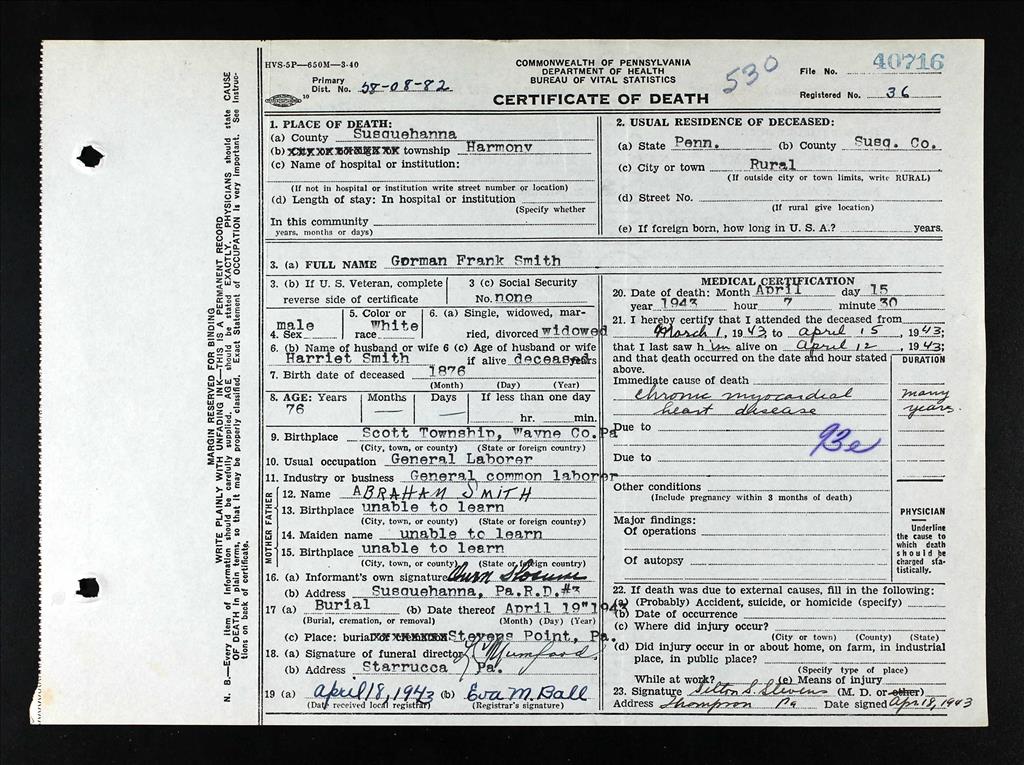 HVS-5P—650M—3-40
COMMONWEALTH OF PENNSYLVANIA
DEPARTMENT OF HEALTH
BUREAU OF VITAL STATISTICS
CERTIFICATE OF DEATH
530
File No. 40716
Primary
Dist. No. 58-08-82
10
Registered No. 36
MARGIN RESERVED FOR BINDING
WRITE PLAINLY WITH UNFADING INK—THIS IS A PERMANENT RECORD
N. B.—Every item of information should be carefully supplied. AGE should be stated EXACTLY. PHYSICIANS should state CAUSE
OF DEATH in plain terms, so that it may be properly classified. Exact Statement of OCCUPATION is very important. See Instruc-
tions on back of certificate.
1. PLACE OF DEATH:
(a) County Susquehanna
(b) township Harmony
(c) Name of hospital or institution:
(If not in hospital or institution write street number or location)
(d) Length of stay: In hospital or institution
(Specify whether
In this community
years, months or days)
2. USUAL RESIDENCE OF DECEASED:
(a) State Penn. (b) County Susq. Co.
(c) City or town Rural
(If outside city or town limits, write RURAL)
(d) Street No.
(If rural give location)
(e) If foreign born, how long in U. S. A.? years.
3. (a) FULL NAME Gorman Frank Smith
3. (b) If U. S. Veteran, complete
reverse side of certificate
3 (c) Social Security
No. none
4. Sex male
5. Color or
race White
6. (a) Single, widowed, mar-
ried, divorced widowed
6. (b) Name of husband or wife
Harriet Smith
6 (c) Age of husband or wife
if alive deceased years
7. Birth date of deceased 1876
(Month) (Day) (Year)
8. AGE: Years Months Days If less than one day
76 — — hr. min.
9. Birthplace Scott Township, Wayne Co. Pa
(City, town, or county) (State or foreign country)
10. Usual occupation General Laborer
11. Industry or business General common laborer
FATHER
12. Name ABRAHAM SMITH
13. Birthplace unable to learn
(City, town, or county) (State or foreign country)
MOTHER
14. Maiden name unable to learn
15. Birthplace unable to learn
(City, town, or county) (State or foreign country)
16. (a) Informant's own signature
(b) Address Susquehanna, Pa. R.D.#3
17 (a) Burial (b) Date thereof April 19" 1943
(Burial, cremation, or removal) (Month) (Day) (Year)
(c) Place: burial Stevens Point, Pa.
18. (a) Signature of funeral director Mumford
(b) Address Starrucca Pa.
19 (a) april 18, 1943 (b) Eva M. Ball
(Date received local registrar) (Registrar's signature)
MEDICAL CERTIFICATION
20. Date of death: Month April day 15
year 1943 hour 7 minute 30
21. I hereby certify that I attended the deceased from
March 1, 1943, to april 15, 1943;
that I last saw him alive on april 12, 1943;
and that death occurred on the date and hour stated
above.
DURATION
Immediate cause of death
chronic myocardial
heart disease
many
years.
Due to
93e
Due to
Other conditions
(Include pregnancy within 3 months of death)
Major findings:
Of operations
Of autopsy
PHYSICIAN
—
Underline
the cause to
which death
should be
charged sta-
tistically.
22. If death was due to external causes, fill in the following:
(a) (Probably) Accident, suicide, or homicide (specify)
(b) Date of occurrence
(c) Where did injury occur?
(City or town) (County) (State)
(d) Did injury occur in or about home, on farm, in industrial
place, in public place?
(Specify type of place)
While at work? (e) Means of injury
23. Signature S. Stevens (M. D. or other)
Address Thompson Pa Date signed Apr 18, 1943